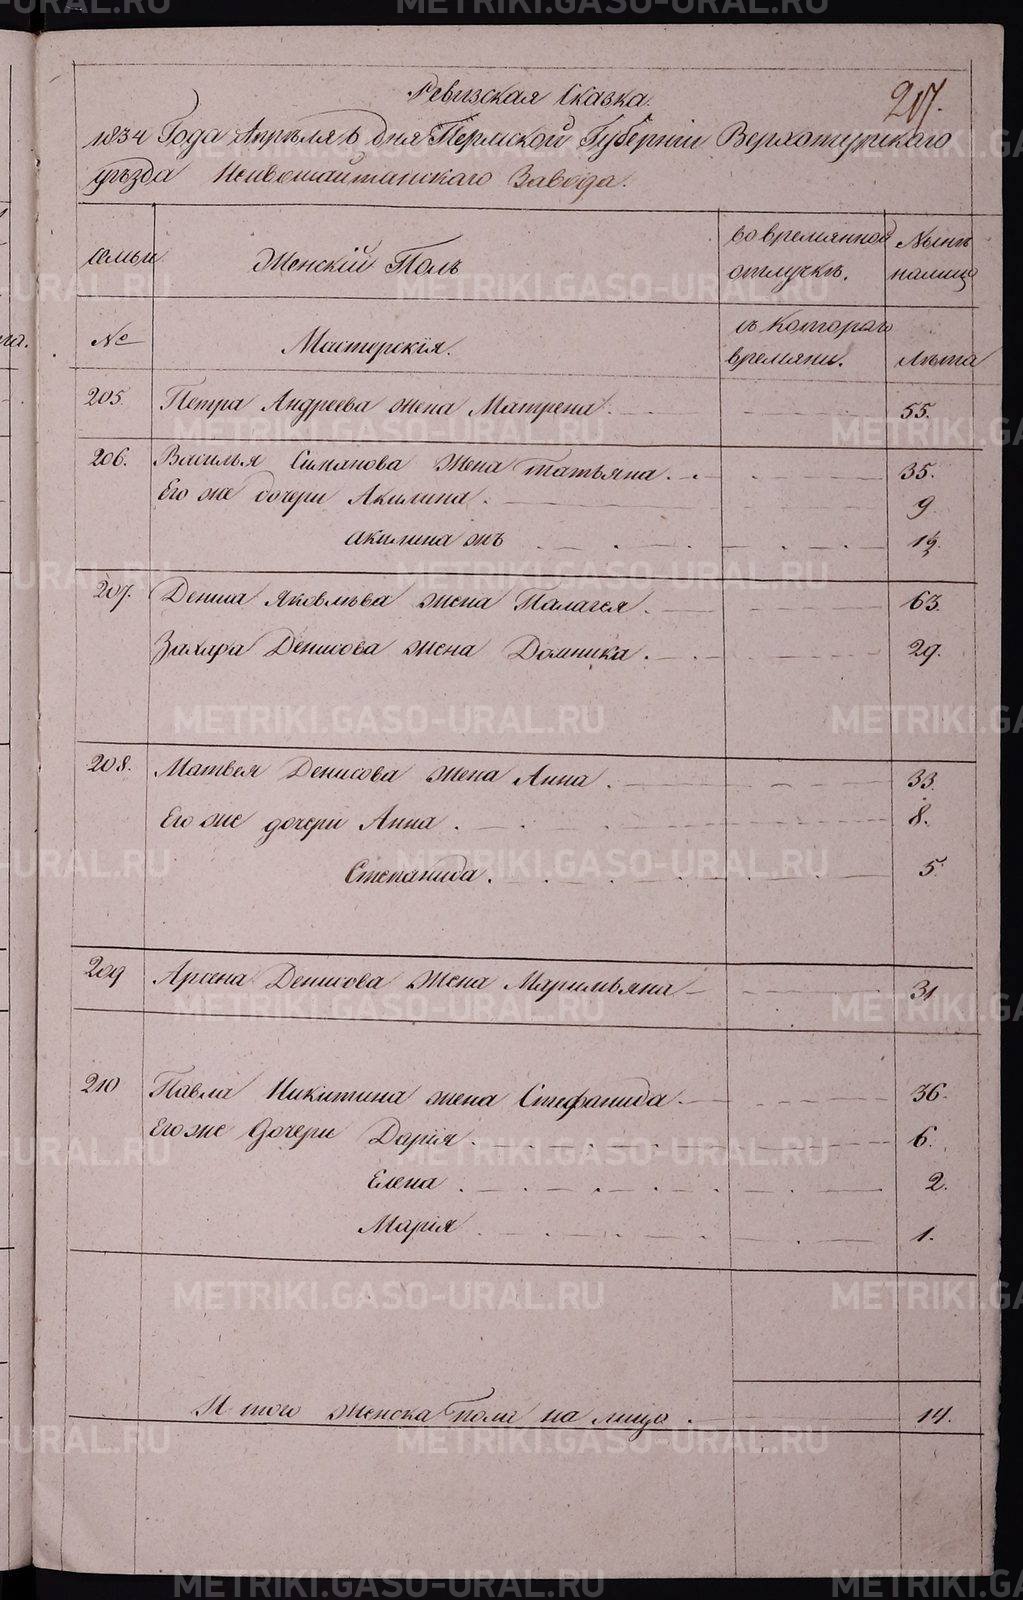 Ревизская Сказка.
207.
1834 Года Апреля 6 дня Пермской Губернии Верхотурскаго
уѣзда Невьошайтанскаго Завода.
семьи Женскій Полъ во времянной отлучкѣ. Нынѣ налицо
№ Мастерскія. съ котораго времяни. Лѣта
205. Петра Андреева жена Матрена 55.
206. Василья Симанова жена Татьяна 35.
Его же дочери Акилина 9
Акилина жъ
207. Дениса Яковлѣва жена Палагея 63.
Захара Денисова жена Домника 29.
208. Матвея Денисова жена Анна 33.
Его же дочери Анна 8.
Степанида 5.
209 Арсена Денисова жена Маримьяна 31
210 Павла Никитина жена Стефанида 36.
Его же дочери Дарія 6.
Елена 2.
Марія 1.
И того женска пола на лицо 14.
METRIKI.GASO-URAL.RU